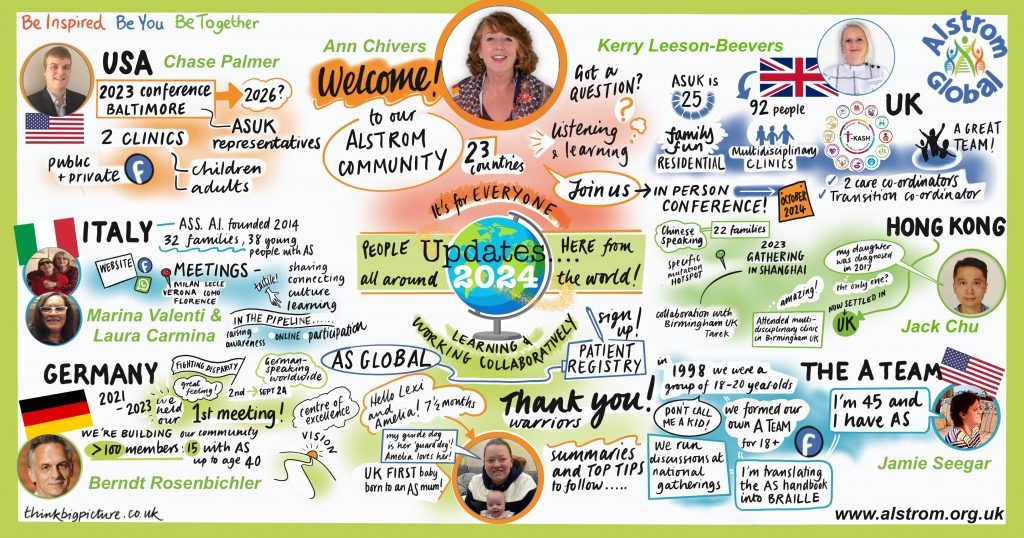 Be Inspired Be You Be Together
USA
Chase Palmer
2023 conference
BALTIMORE
2026?
ASUK
representatives
2 CLINICS
public
+ private
f
children
adults
Ann Chivers
Welcome!
to our
ALSTROM
COMMUNITY
23
countries
Got a
QUESTION?
?
listening
& learning
Join us → IN PERSON
CONFERENCE!
OCTOBER
2024
Kerry Leeson-Beevers
Alstrom
Global
ASUK is
25
family
fun
RESIDENTIAL
92 people
Multidisciplinary
CLINICS
UK
T-KASH
A GREAT
TEAM!
✓ 2 care co-ordinators
✓ Transition co-ordinator
ITALY
ASS. A.I. founded 2014
32 families, 38 young
people with AS
WEBSITE
f
MEETINGS -
MILAN LECCE
VERONA COMO
FLORENCE
tactile!
sharing
connecting
culture
learning
IN THE PIPELINE......
raising
awareness
• ONLINE •
participation
Marina Valenti &
Laura Carmina
It's for EVERYONE
PEOPLE
all around
HERE from
the world!
Updates....
2024
LEARNING &
WORKING COLLABORATIVELY
HONG KONG
Chinese
speaking
22 families
specific
mutation
HOTSPOT
2023
GATHERING
IN SHANGHAI
my daughter
was diagnosed
in 2017
the only one?
amazing!
NOW SETTLED IN
UK
collaboration with
Birmingham UK
Tarek
Attended multi-
disciplinary clinic
in Birmingham UK
Jack Chu
GERMANY
2021
- 2023
FIGHTING DISPARITY
great
feeling!
we
held
our
1st meeting!
German-
speaking
worldwide
2nd → SEPT 24
WE'RE BUILDING our community
>100 members: 15 with AS
up to age 40
centre of
excellence
VISION
Berndt Rosenbichler
AS GLOBAL
sign
up!
PATIENT
REGISTRY
Hello Lexi
and
Amelia! 7½ months
my guide dog
is her 'guard dog'!
Amelia loves her!
UK FIRST baby
born to an AS mum!
Thank you!
warriors
summaries
and TOP TIPS
to follow.....
THE A TEAM
in
1998 we were a
group of 18-20 year olds
DON'T CALL
ME A KID!
we formed our
own A TEAM
for 18+
f
I'm 45 and
I have AS
WE RUN
discussions at
national
gatherings
I'm translating
the AS handbook
into BRAILLE
Jamie Seegar
thinkbigpicture.co.uk
www.alstrom.org.uk